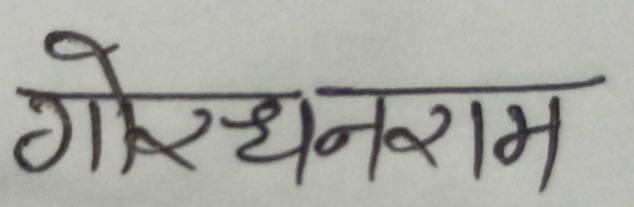 गोरधनराम